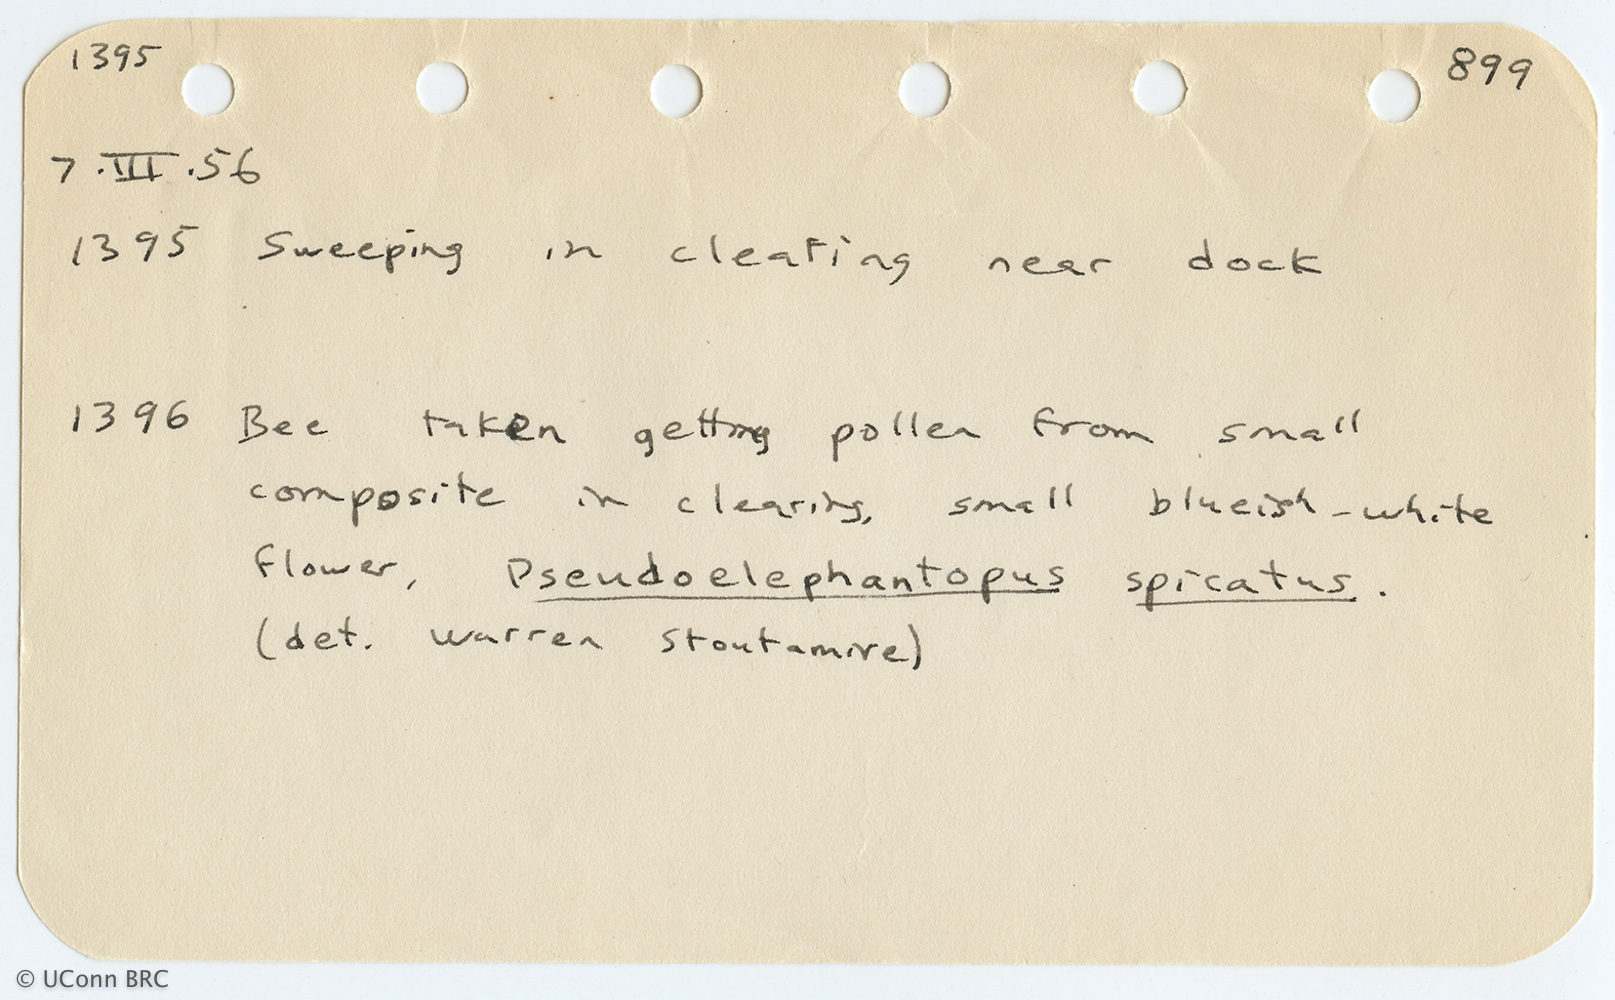 1395 899
7.III.56
1395 Sweeping in clearing near dock
1396 Bee taken getting pollen from small
composite in clearing, small blueish-white
flower, Pseudoelephantopus spicatus.
(det. Warren Stoutamire)
© UConn BRC